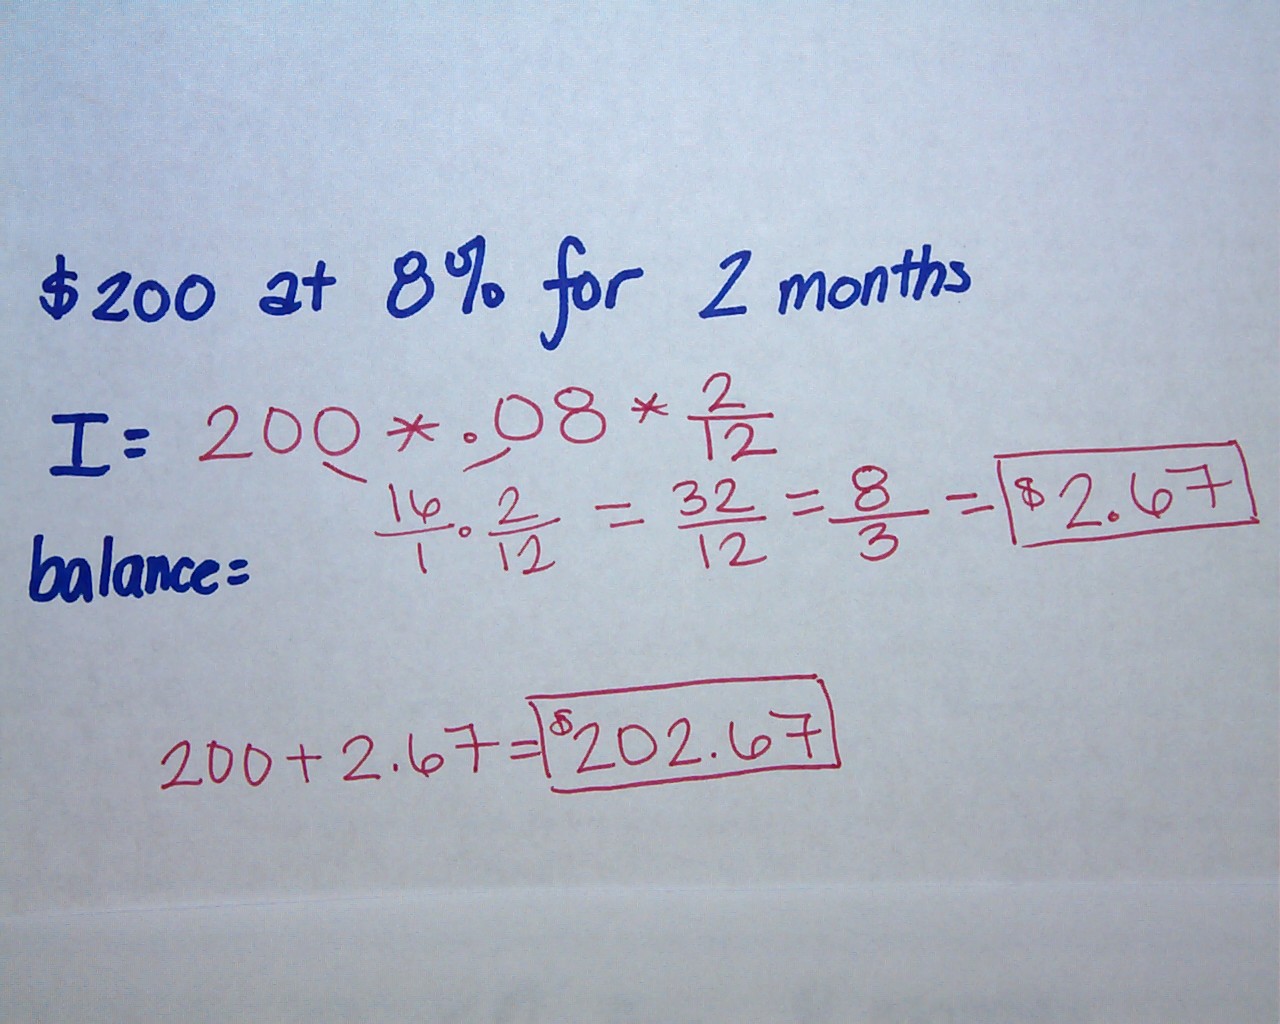 $200 at 8% for 2 months
I= 200 * .08 * 2/12
16/1 · 2/12 = 32/12 = 8/3 = $2.67
balance=
200 + 2.67 = $202.67